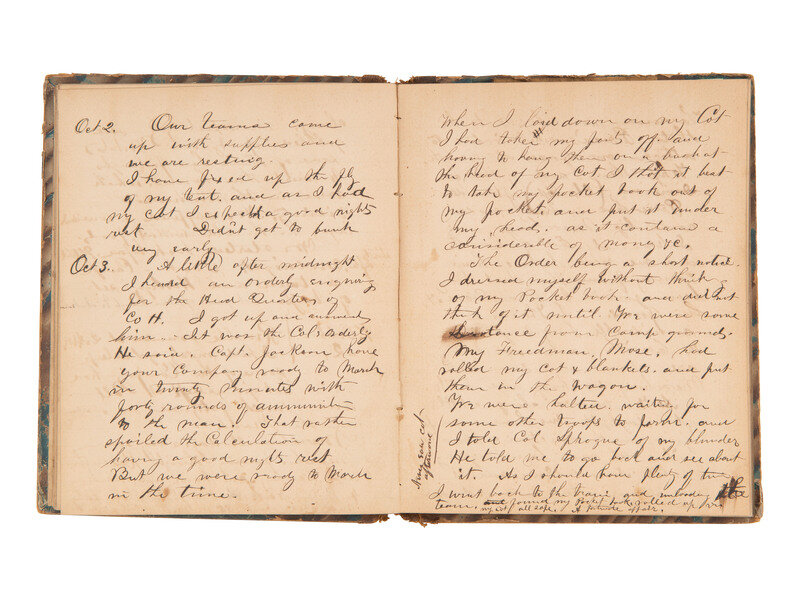 Oct 2. Our teams came
up with supplies and
we are resting.
I have fixed up the fly
of my tent. and as I had
my Cot I expected a good nights
rest. Didn't get to bunk
very early
Oct 3. A little after midnight
I heard an orderly enquiring
for the Head Quarters of
Co H. I got up and answered
him. It was the Cols Orderly
He said. Capt. Jackson have
your Company ready to March
in twenty minutes with
forty rounds of ammunition
to the man. That rather
spoiled the Calculation of
having a good nights rest
But we were ready to March
in the time.
When I laid down on my Cot
I had taken my pants off. and
having to hang them on a bush at
the head of my Cot I thot it best
to take my pocket book out of
my pocket. and put it under
my head. as it contained a
considerable of money &c.
The Order being a short notice.
I dressed myself without thinking
of my Pocket book. and did not
think of it until We were some
distance from Camp grounds.
My Freedman, Mose, had
rolled my Cot & blankets. and put
them in the Wagon.
We were halted. waiting for
some other troops to form. and
I told Col Sprague of my blunder
He told me to go back and see about
it. As I should have plenty of time
I went back to the train and unloading the
team. found my Pocket book rolled up in
my cot all safe. A fortunate affair.
afternoon